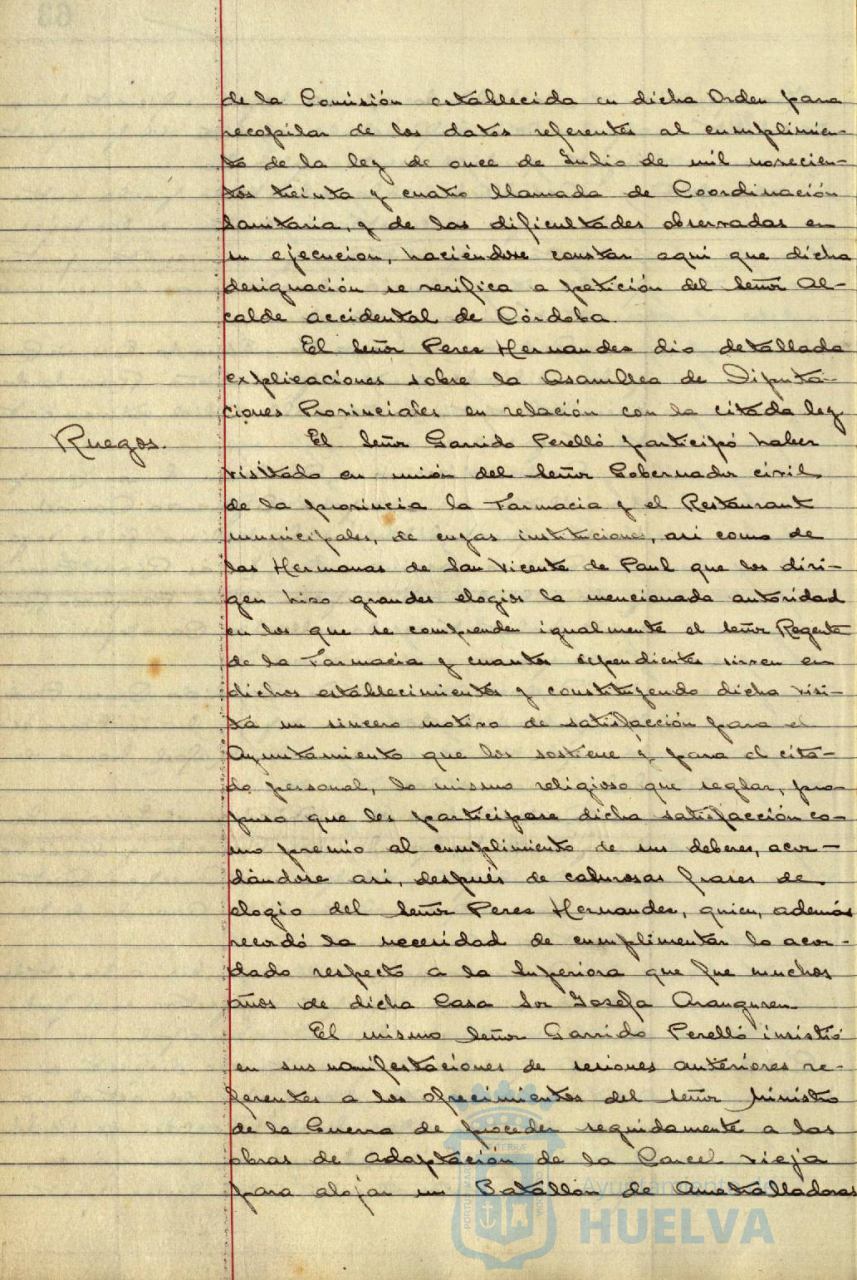 de la Comisión establecida en dicha Orden para
recopilar de los datos referentes al cumplimien-
to de la ley de once de Julio de mil novecien-
tos treinta y cuatro llamada de Coordinación
Sanitaria, y de las dificultades observadas en
su ejecucion, haciéndose constar aqui que dicha
designación se verifica a petición del Señor Al-
calde accidental de Córdoba.
El Señor Perez Hernandez dio detallada
explicaciones sobre la Asamblea de Diputa-
ciones Provinciales en relación con la citada ley
Ruegos.
El Señor Garrido Perelló participó haber
visitado en unión del Señor Gobernador civil
de la provincia la Farmacia y el Restaurant
municipales, de cuyas instituciones, asi como de
las Hermanas de San Vicente de Paul que los diri-
gen hizo grandes elogios la mencionada autoridad
en los que se comprenden igualmente el señor Regente
de la Farmacia y cuantos dependientes sirven en
dichos establecimientos y constituyendo dicha visi-
ta un sincero motivo de satisfacción para el
Ayuntamiento que los sostiene y para el cita-
do personal, lo mismo religioso que seglar, pro-
puso que les participase dicha satisfacción co-
mo premio al cumplimiento de sus deberes, acor-
dándose asi, después de calurosas frases de
elogio del Señor Perez Hernandez, quien, además
recordó la necesidad de cumplimentar lo acor-
dado respecto a la Superiora que fue muchos
años de dicha Casa Sor Josefa Aranguren.
El mismo Señor Garrido Perelló insistió
en sus manifestaciones de sesiones anteriores re-
ferentes a los ofrecimientos del señor Ministro
de la Guerra de proceder seguidamente a las
obras de adaptación de la Carcel vieja
para alojar un Batallon de Ametralladoras
Ayuntamiento de
HUELVA